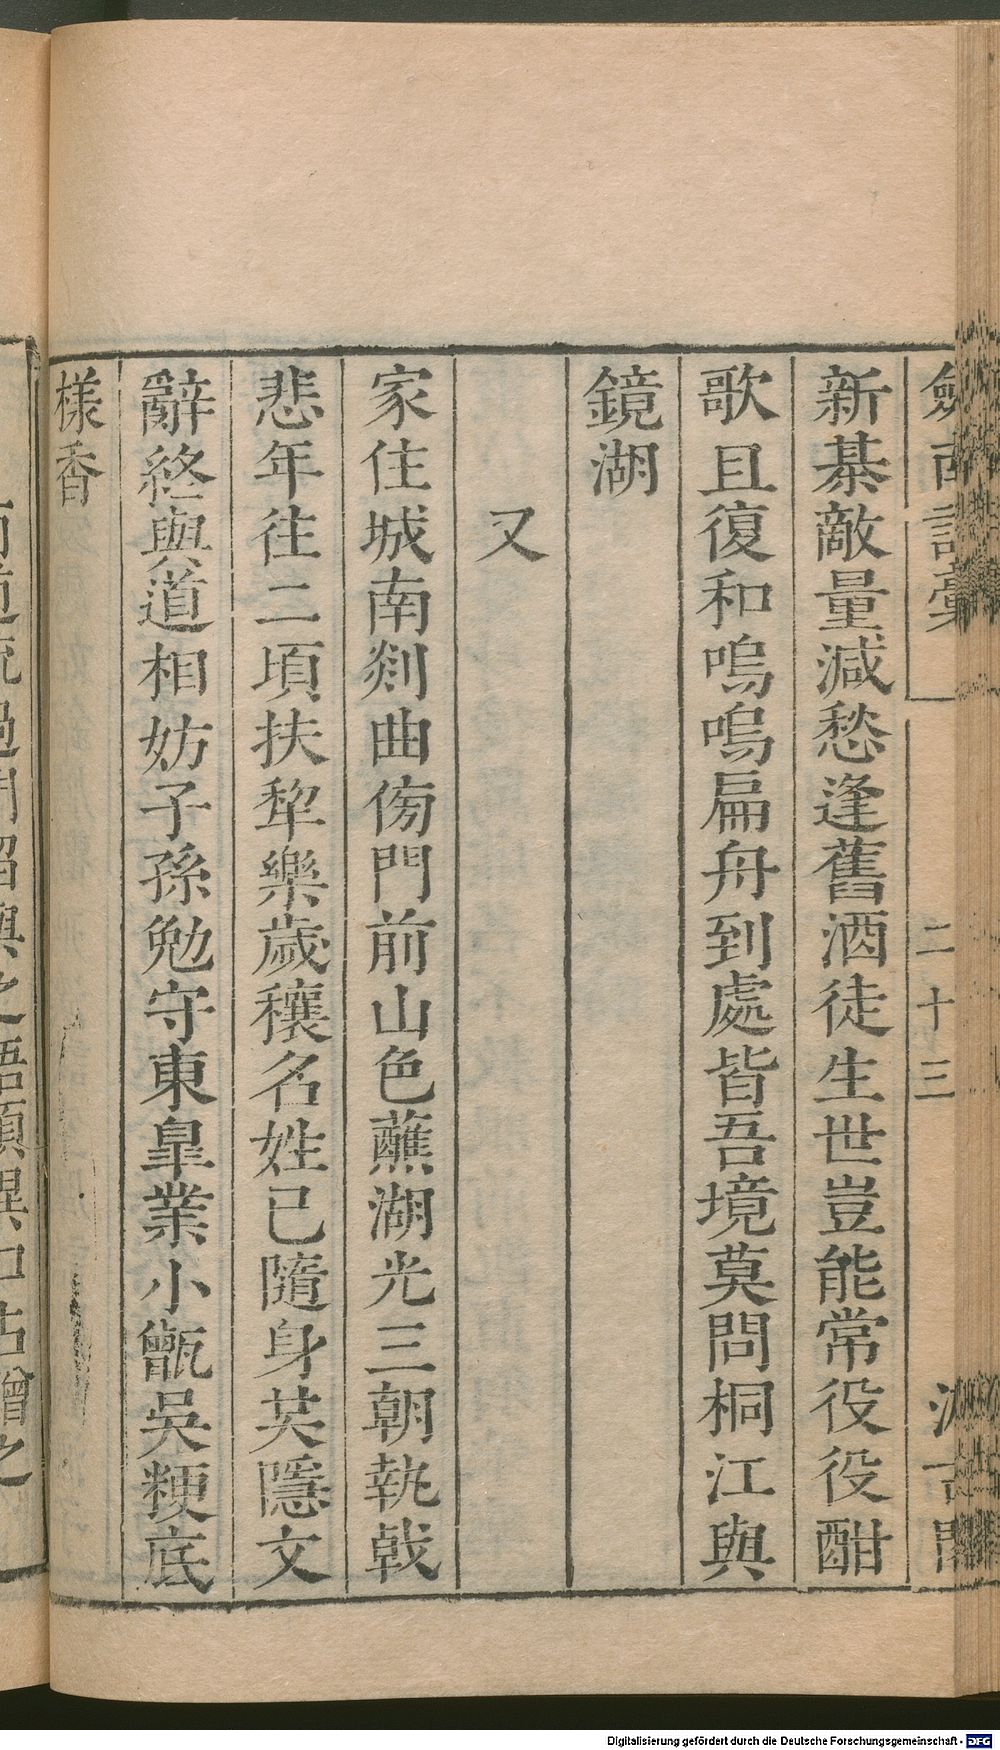 二十三
新棊敵量減愁逢舊酒徒生世豈能常役役酣
歌且復和嗚嗚扁舟到處皆吾境莫問桐江與
鏡湖
又
家住城南剡曲傍門前山色蘸湖光三朝執戟
悲年往二頃扶犂樂歲穰名姓已隨身共隱文
辭終與道相妨子孫勉守東臯業小甑吳粳底
樣香
Digitalisierung gefördert durch die Deutsche Forschungsgemeinschaft - DFG